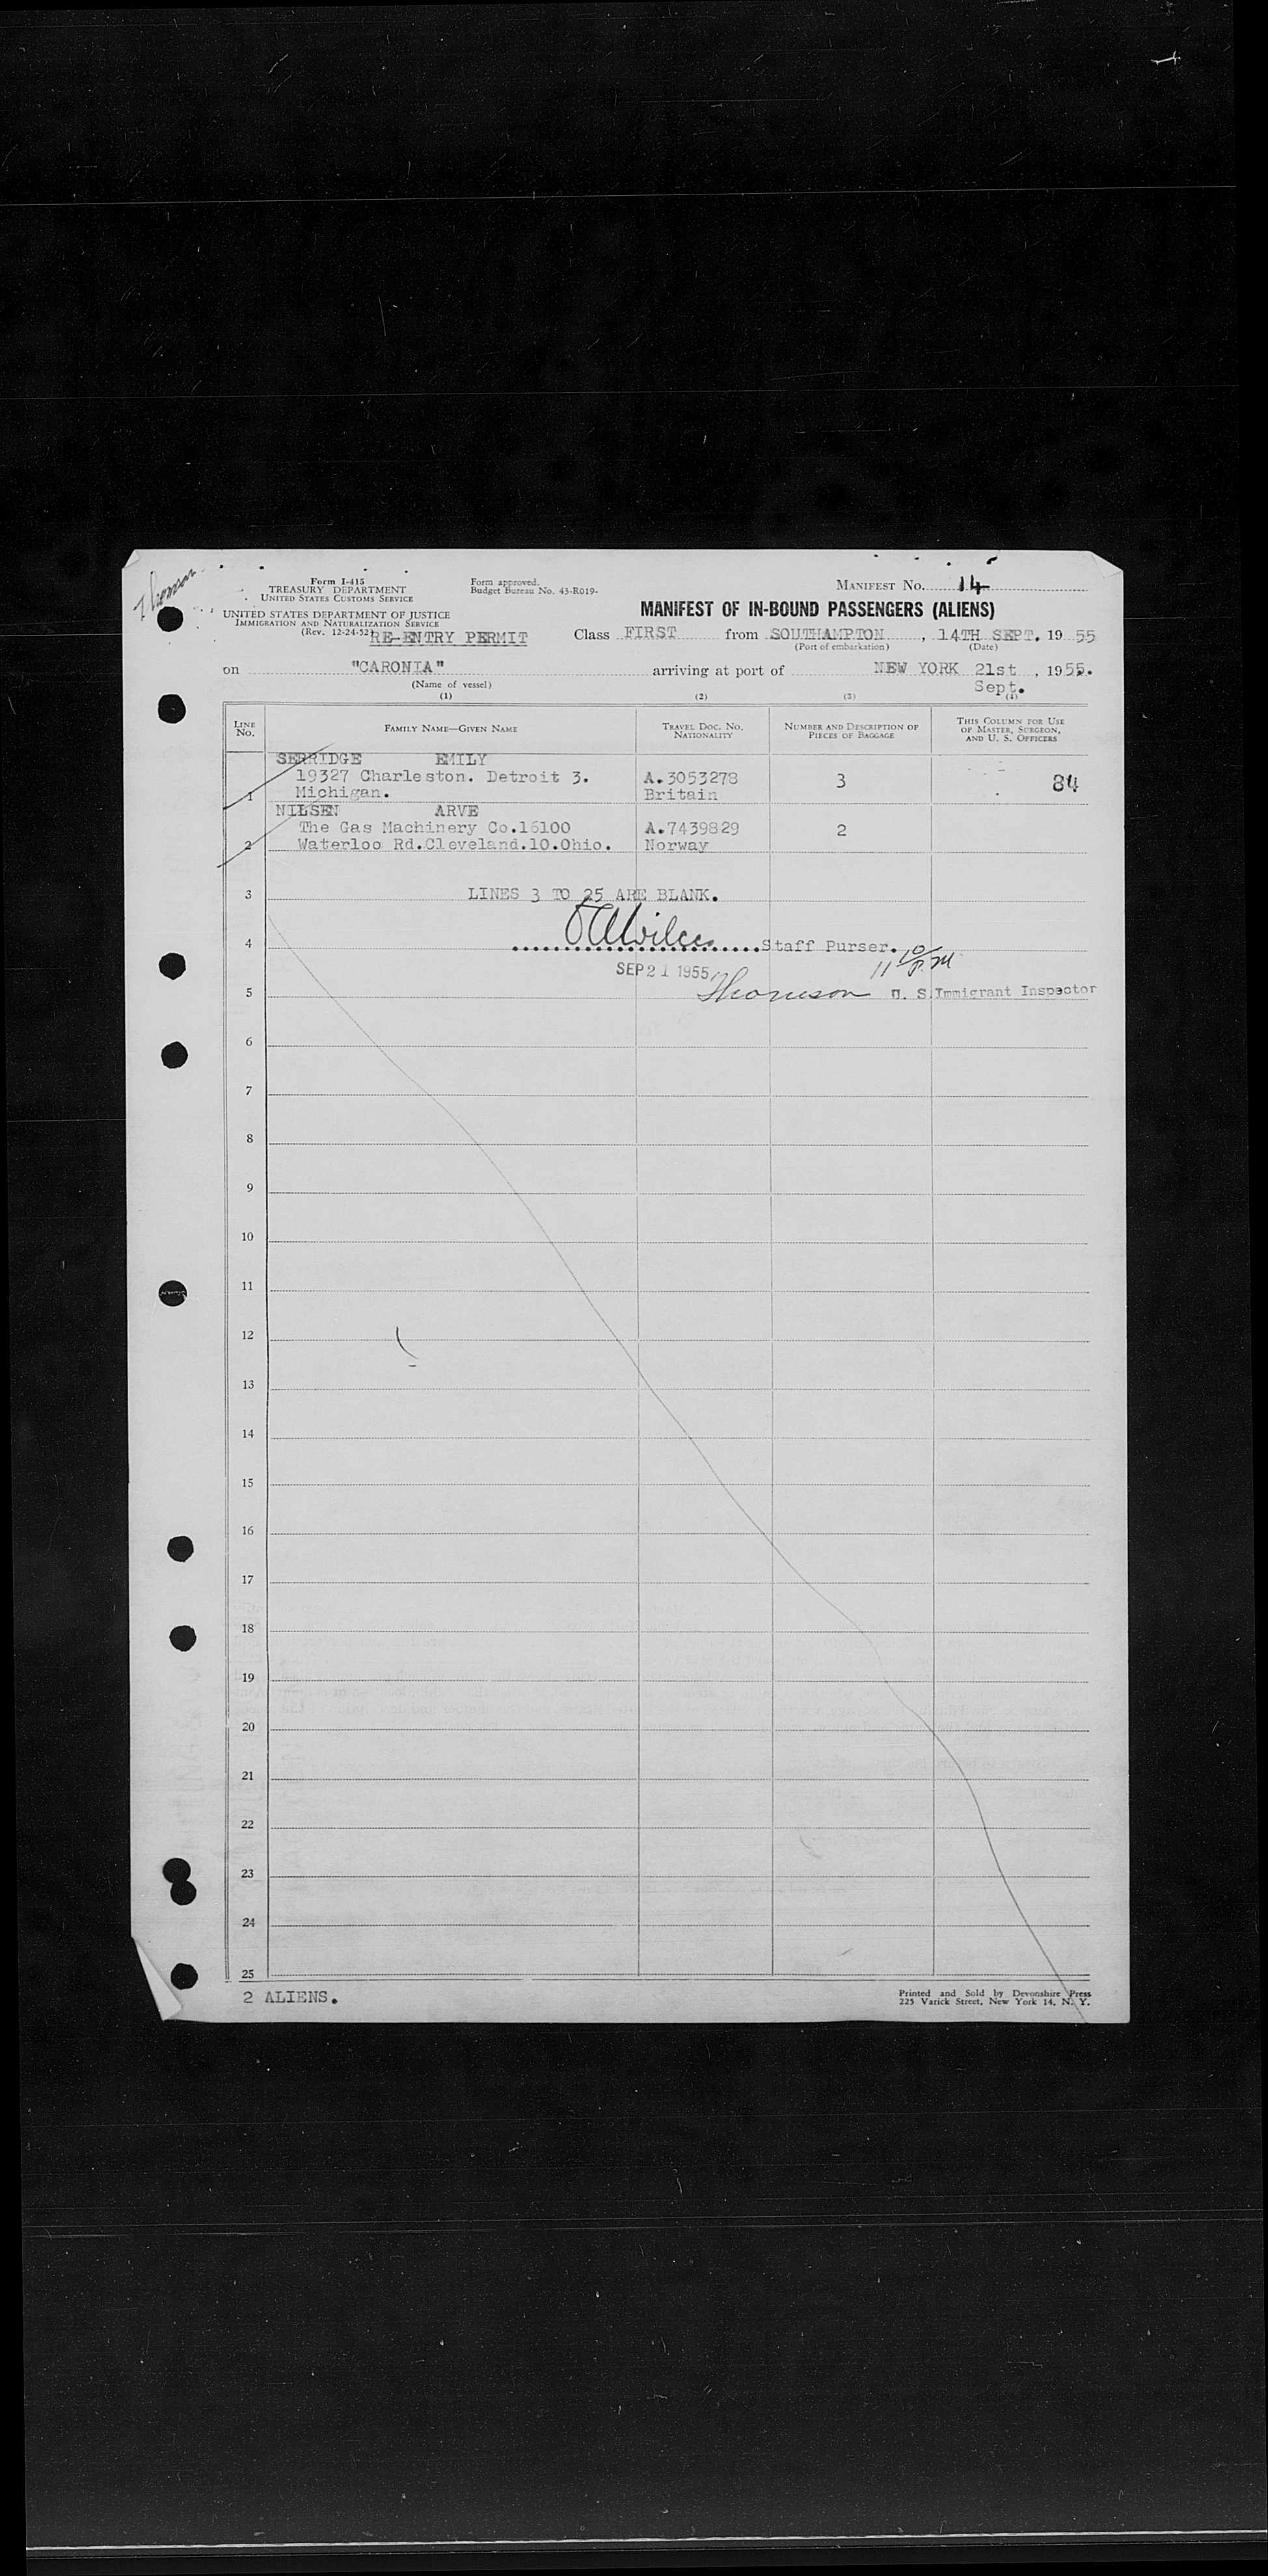 Form I-415
TREASURY DEPARTMENT
UNITED STATES CUSTOMS SERVICE
UNITED STATES DEPARTMENT OF JUSTICE
IMMIGRATION AND NATURALIZATION SERVICE
(Rev. 12-24-52)
Form approved.
Budget Bureau No. 43-R019-
MANIFEST No. 14
MANIFEST OF IN-BOUND PASSENGERS (ALIENS)
RE-ENTRY PERMIT Class FIRST from SOUTHAMPTON, 14TH SEPT. 1955
(Port of embarkation) (Date)
on "CARONIA" arriving at port of NEW YORK 21st, 1955.
Sept.
(Name of vessel)
(1) (2) (3) (4)
LINE No. FAMILY NAME—GIVEN NAME TRAVEL DOC. NO. NATIONALITY NUMBER AND DESCRIPTION OF PIECES OF BAGGAGE THIS COLUMN FOR USE OF MASTER, SURGEON, AND U. S. OFFICERS
SERRIDGE EMILY
19327 Charleston. Detroit 3. A.3053278 3 84
1 Michigan. Britain
NILSEN ARVE
The Gas Machinery Co.16100 A.7439829 2
2 Waterloo Rd.Cleveland.10.Ohio. Norway
3 LINES 3 TO 25 ARE BLANK.
4 Staff Purser.
SEP 21 1955 11 10 P.M
5 Thomson U. S. Immigrant Inspector
6
7
8
9
10
11
12
13
14
15
16
17
18
19
20
21
22
23
24
25
2 ALIENS.
Printed and Sold by Devonshire Press
225 Varick Street, New York 14, N. Y.